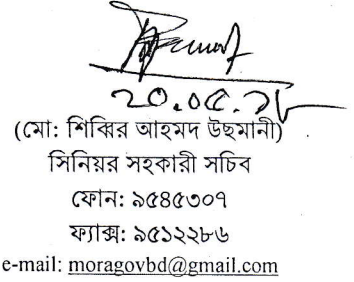 ২০.০৫.১৮
(মো: শিব্বির আহমদ উছমানী)
সিনিয়র সহকারী সচিব
ফোন: ৯৫৪৫৩০৭
ফ্যাক্স: ৯৫১২২৮৬
e-mail: moragovbd@gmail.com